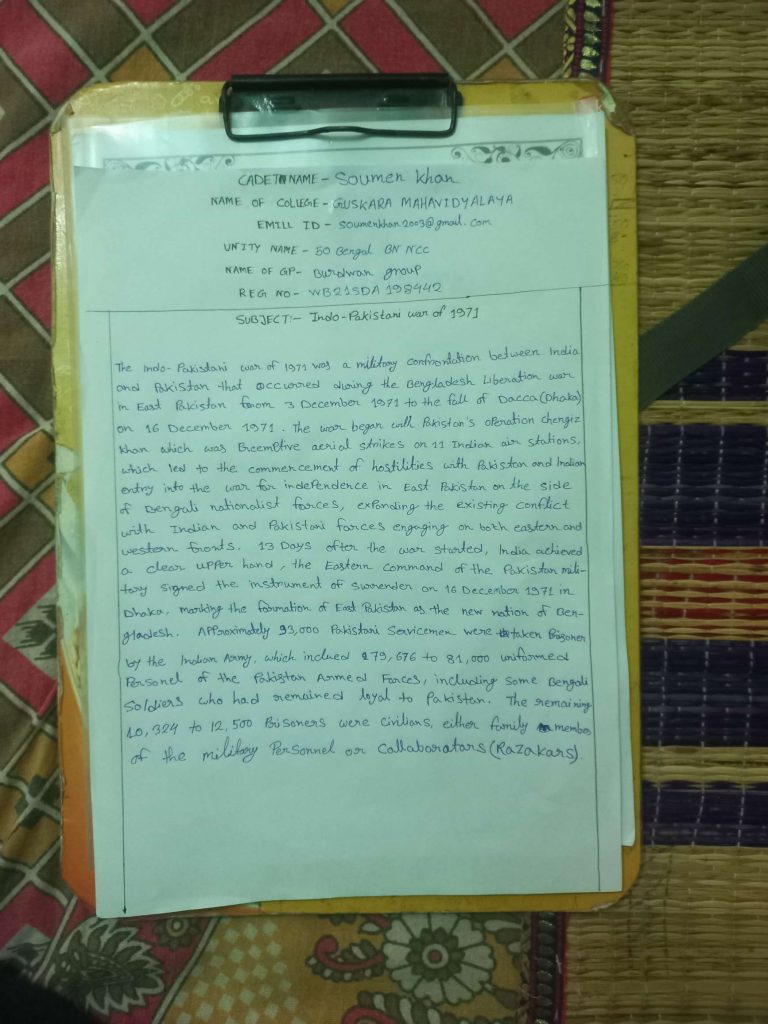 CADET NAME - Soumen Khan
NAME OF COLLEGE - GUSKARA MAHAVIDYALAYA
EMILL ID - soumenkhan2003@gmail.com
UNITY NAME - 50 Bengal BN NCC
NAME OF GP- Burdwan group
REG NO - WB21SDA198442
SUBJECT:- Indo-Pakistani war of 1971
The Indo-Pakisdani war of 1971 was a military confrontation between India
and Pakistan that occurred during the Bengladesh Liberation war
in East Pakistan from 3 December 1971 to the fall of Dacca (Dhaka)
on 16 December 1971. The war began with Pakistan's operation chengiz
Khan which was Preemptive aerial strikes on 11 Indian air stations,
which led to the commencement of hostilities with Pakistan and Indian
entry into the war for independence in East Pakistan on the side
of Bengali nationalist forces, expanding the existing conflict
with Indian and Pakistani forces engaging on both eastern and
western fronts. 13 Days after the war started, India achieved
a clear upper hand, the Eastern command of the Pakistan mili-
tary signed the instrument of surrender on 16 December 1971 in
Dhaka, marking the formation of East Pakistan as the new nation of Ben-
gladesh. Approximately 93,000 Pakistani Servicemen were taken Prisoner
by the Indian Army, which inclued 79,676 to 81,000 uniformed
Personel of the Pakistan Armed Forces, including some Bengali
Soldiers who had remained loyal to Pakistan. The remaining
10,324 to 12,500 Prisoners were civilians, either family member
of the military Personnel or Collaboratars (Razakars).